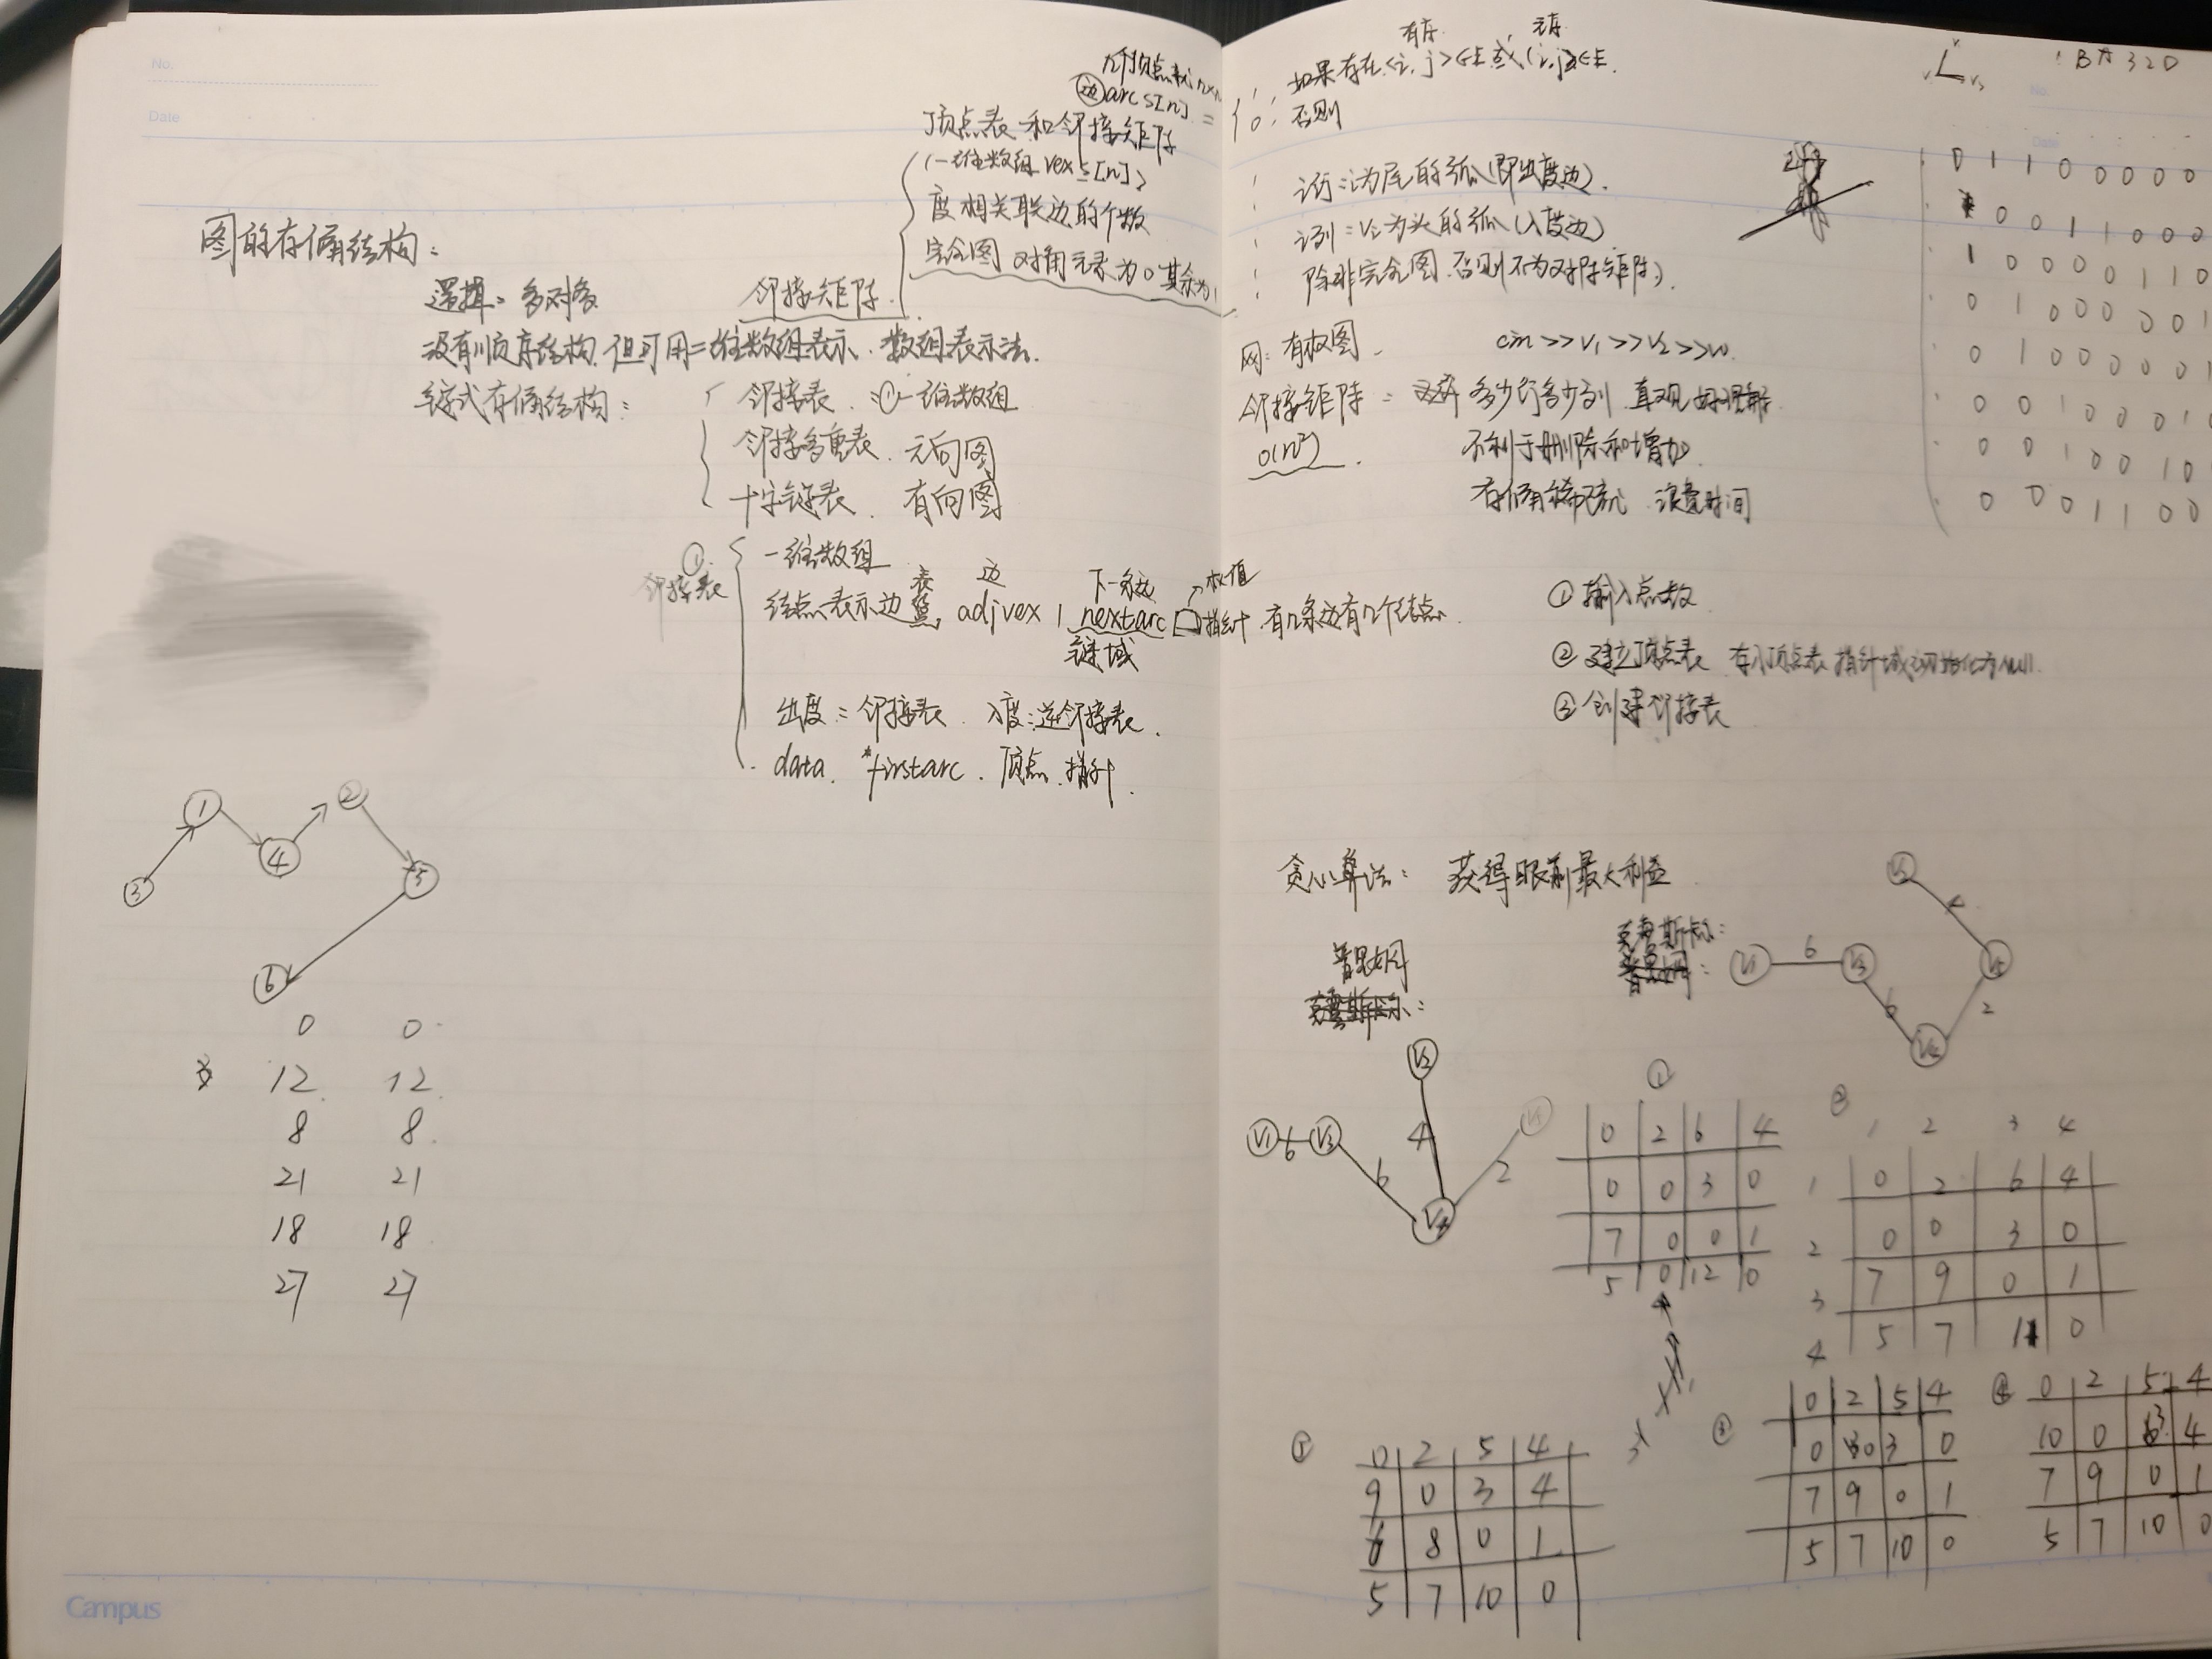 No.
Date
图的存储结构：
逻辑：多对多
没有顺序结构，但可用二维数组表示，数组表示法.
链式存储结构：
邻接表 ：①一维数组
邻接多重表. 无向图
十字链表. 有向图
邻接矩阵
n个顶点
边 arcs[n] =
顶点表和邻接矩阵
(一维数组 vexs[n])
度 相关联边的个数
完全图 对角元素为0 其余为1
① 邻接表
一维数组
结点表示边 表 边
adjvex | nextarc 指针 有n条边有n个结点.
下一条边 → 权值
链域
出度：邻接表. 入度：逆邻接表.
data. *firstarc. 顶点 指针.
3 1 4 2 5 6
0 0
12 12
8 8
21 21
18 18
27 27
Campus
有序 无序
1: 如果存在<i,j>∈E 或(i,j)∈E.
0: 否则
i行：i为尾的弧(即出度边).
i列：vi为头的弧(入度边)
除非完全图，否则不为对称矩阵).
网：有权图. cin>>v1>>v2>>w.
邻接矩阵： 多少行多少列 直观 好理解
o(n²). 不利于删除和增加.
存储稀疏 浪费时间
BA32D
No.
Date
0 1 1 0 0 0 0 0
0 0 1 1 0 0 0
1 0 0 0 0 1 1 0
0 1 0 0 0 0 0 1
0 1 0 0 0 0 0 1
0 0 1 0 0 0 1 0
0 0 1 0 0 1 0
0 0 0 1 1 0 0
① 输入点数
② 建立顶点表 存入顶点表 指针域初始化为null.
③ 创建邻接表
贪心算法： 获得眼前最大利益
普里姆
克鲁斯卡尔：
V1 6 V3 6 V4 4 V2 2 V5
克鲁斯卡尔：
普里姆：
V1 6 V3 6 V4 2 V5 4 V2
①
0 2 6 4
0 0 3 0
7 0 0 1
5 0 12 0
②
1 2 3 4
1 0 2 6 4
2 0 0 3 0
3 7 9 0 1
4 5 7 11 0
③
0 2 5 4
0 0 3 0
7 9 0 1
5 7 10 0
④
0 2 5 4
10 0 3 4
7 9 0 1
5 7 10 0
⑤
0 2 5 4
9 0 3 4
6 8 0 1
5 7 10 0